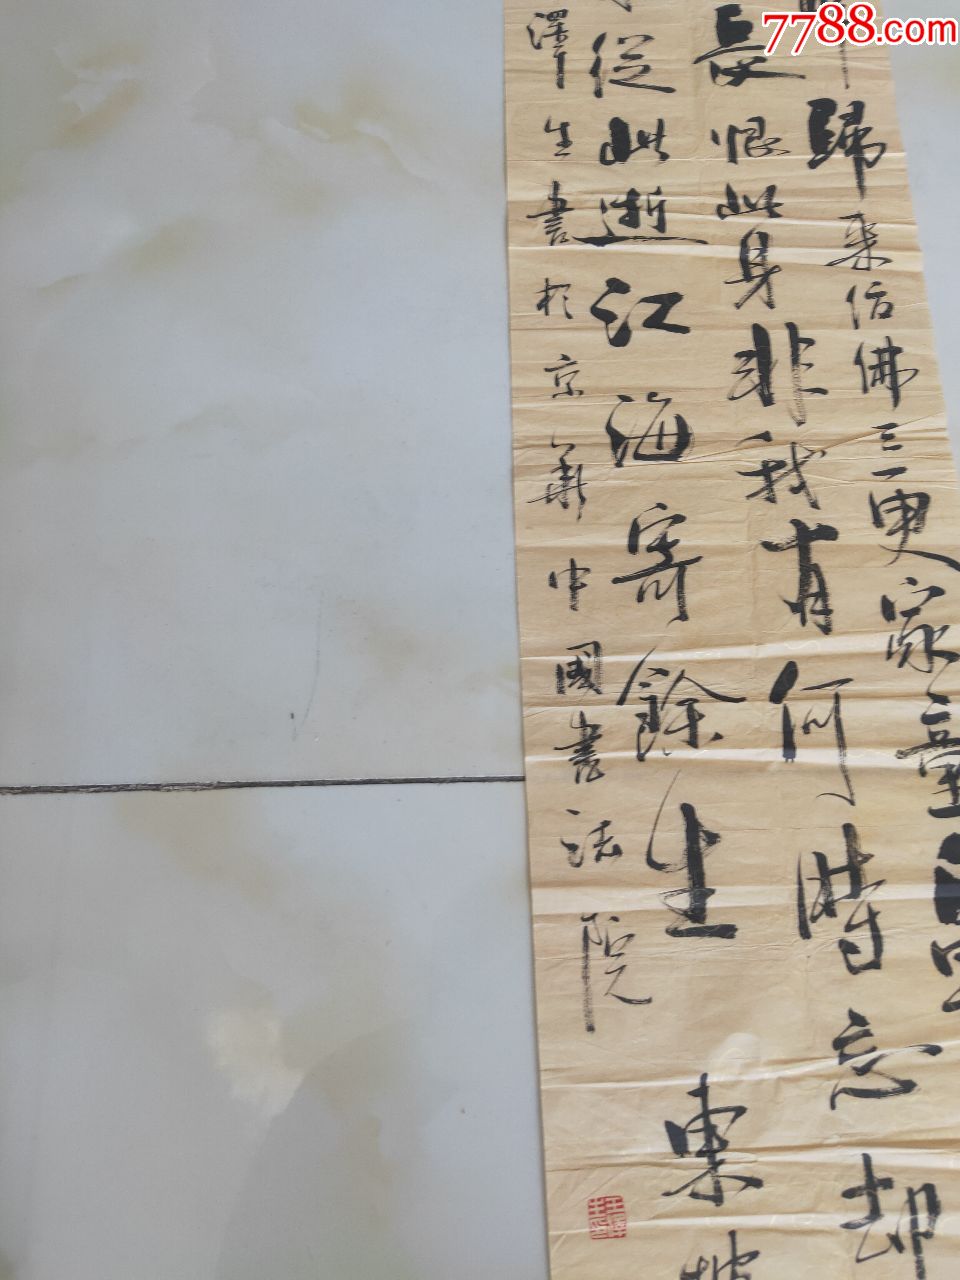 7788.com
歸来仿佛三更家童鼻
長恨此身非我有何時忘却
從此逝江海寄餘生 東坡
澤生書於京華中國書法院